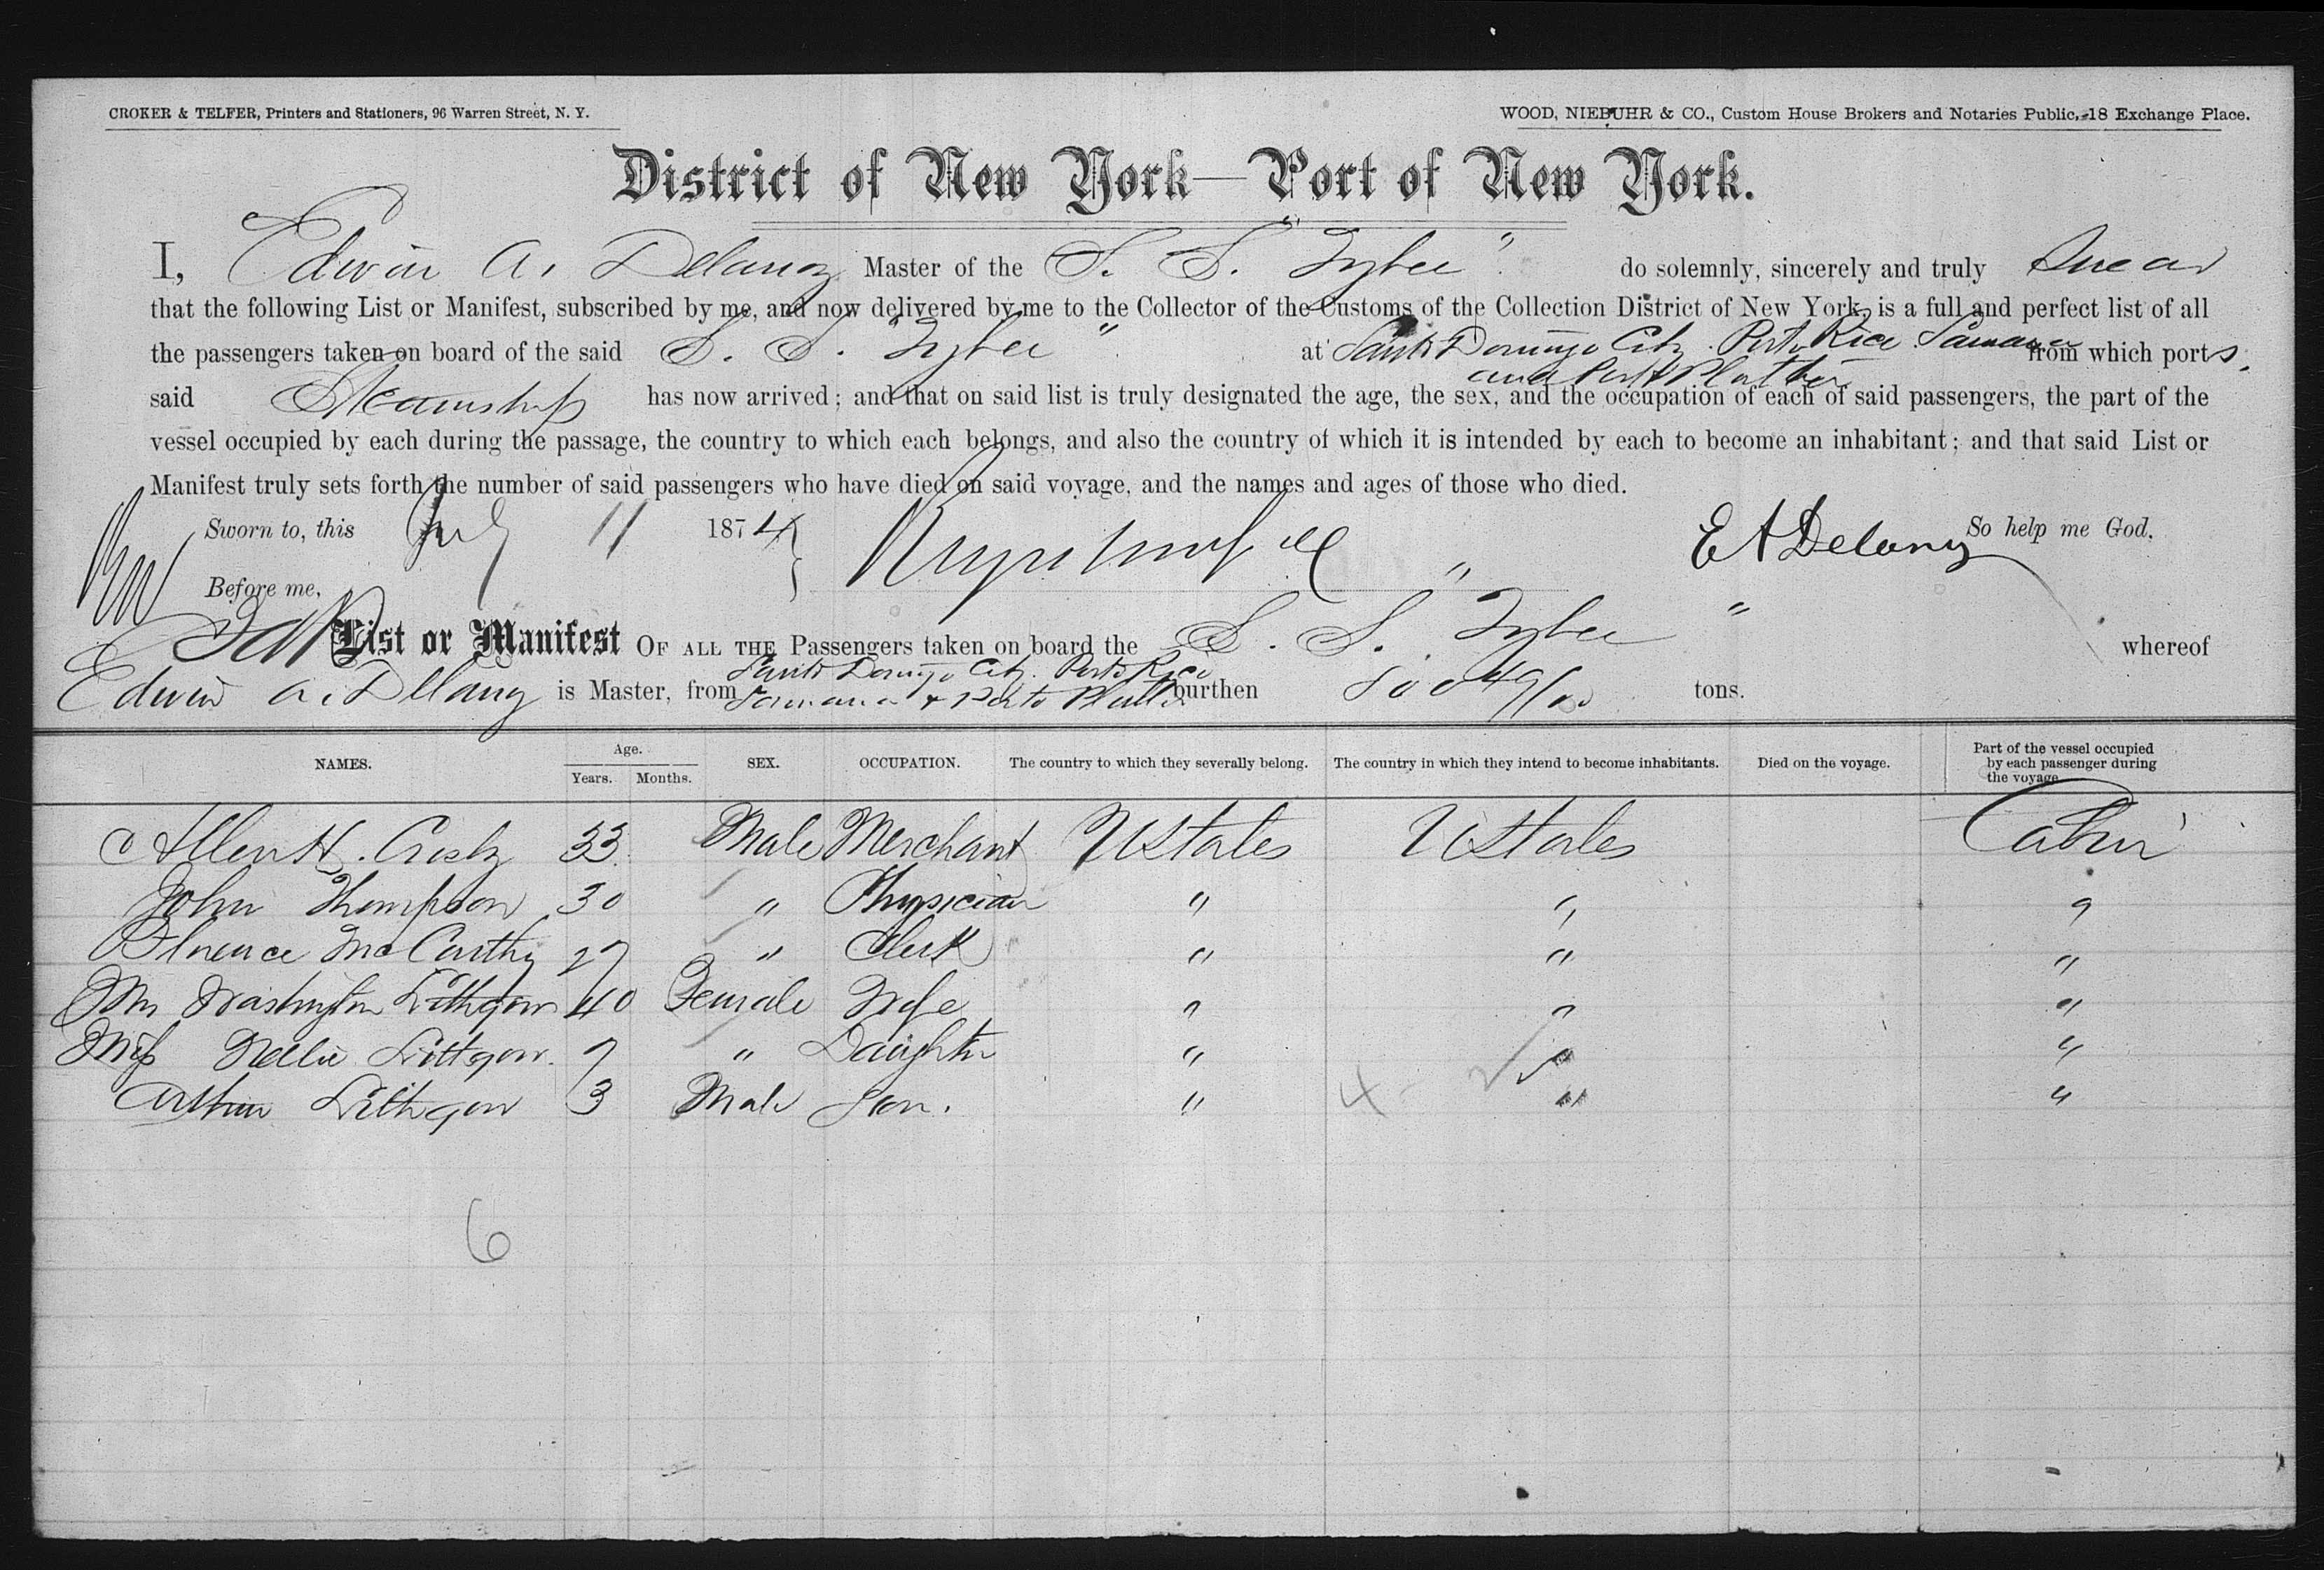 CROKER & TELFER, Printers and Stationers, 96 Warren Street, N. Y.
WOOD, NIEBUHR & CO., Custom House Brokers and Notaries Public, 18 Exchange Place.
District of New York—Port of New York.
I, Edwin A. Delanoy Master of the S. S. "Tybee" do solemnly, sincerely and truly Swear
that the following List or Manifest, subscribed by me, and now delivered by me to the Collector of the Customs of the Collection District of New York, is a full and perfect list of all
the passengers taken on board of the said S. S. "Tybee" at Santo Domingo City Porto Rico Samana from which ports.
and Port Platte
said Steamship has now arrived; and that on said list is truly designated the age, the sex, and the occupation of each of said passengers, the part of the
vessel occupied by each during the passage, the country to which each belongs, and also the country of which it is intended by each to become an inhabitant; and that said List or
Manifest truly sets forth the number of said passengers who have died on said voyage, and the names and ages of those who died.
Sworn to, this July 11 1874 So help me God.
E A Delanoy
Before me,
List or Manifest OF ALL THE Passengers taken on board the S. S. "Tybee" whereof
Santo Domingo City. Porto Rico
Edwin A. Delanoy is Master, from Samana & Porto Platte burthen 800 49/100 tons.
NAMES. Age. Years. Months. SEX. OCCUPATION. The country to which they severally belong. The country in which they intend to become inhabitants. Died on the voyage. Part of the vessel occupied by each passenger during the voyage
Allen H. Crosby 33 Male Merchant UStates UStates Cabin
John Thompson 30 " Physician " " "
Florence McCarthy 27 " Clerk " " "
Mrs Washington Lithgow 40 Female Wife " " "
Miss Nellie Littgow. 7 " Daughter " " "
Arthur Lithgow 3 Male Son. " 4 " "
6